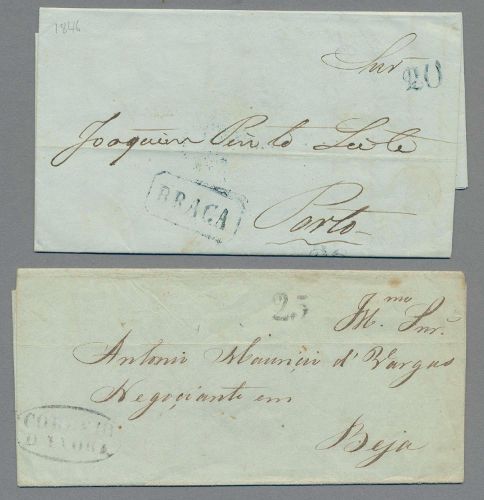 1846
Snr
20
Joaquim Pinto Leite
BRAGA
Porto
25
Illmo Snr.
Antonio Mauricio d'Vargas
Negoçiante em
CORREIO
Beja